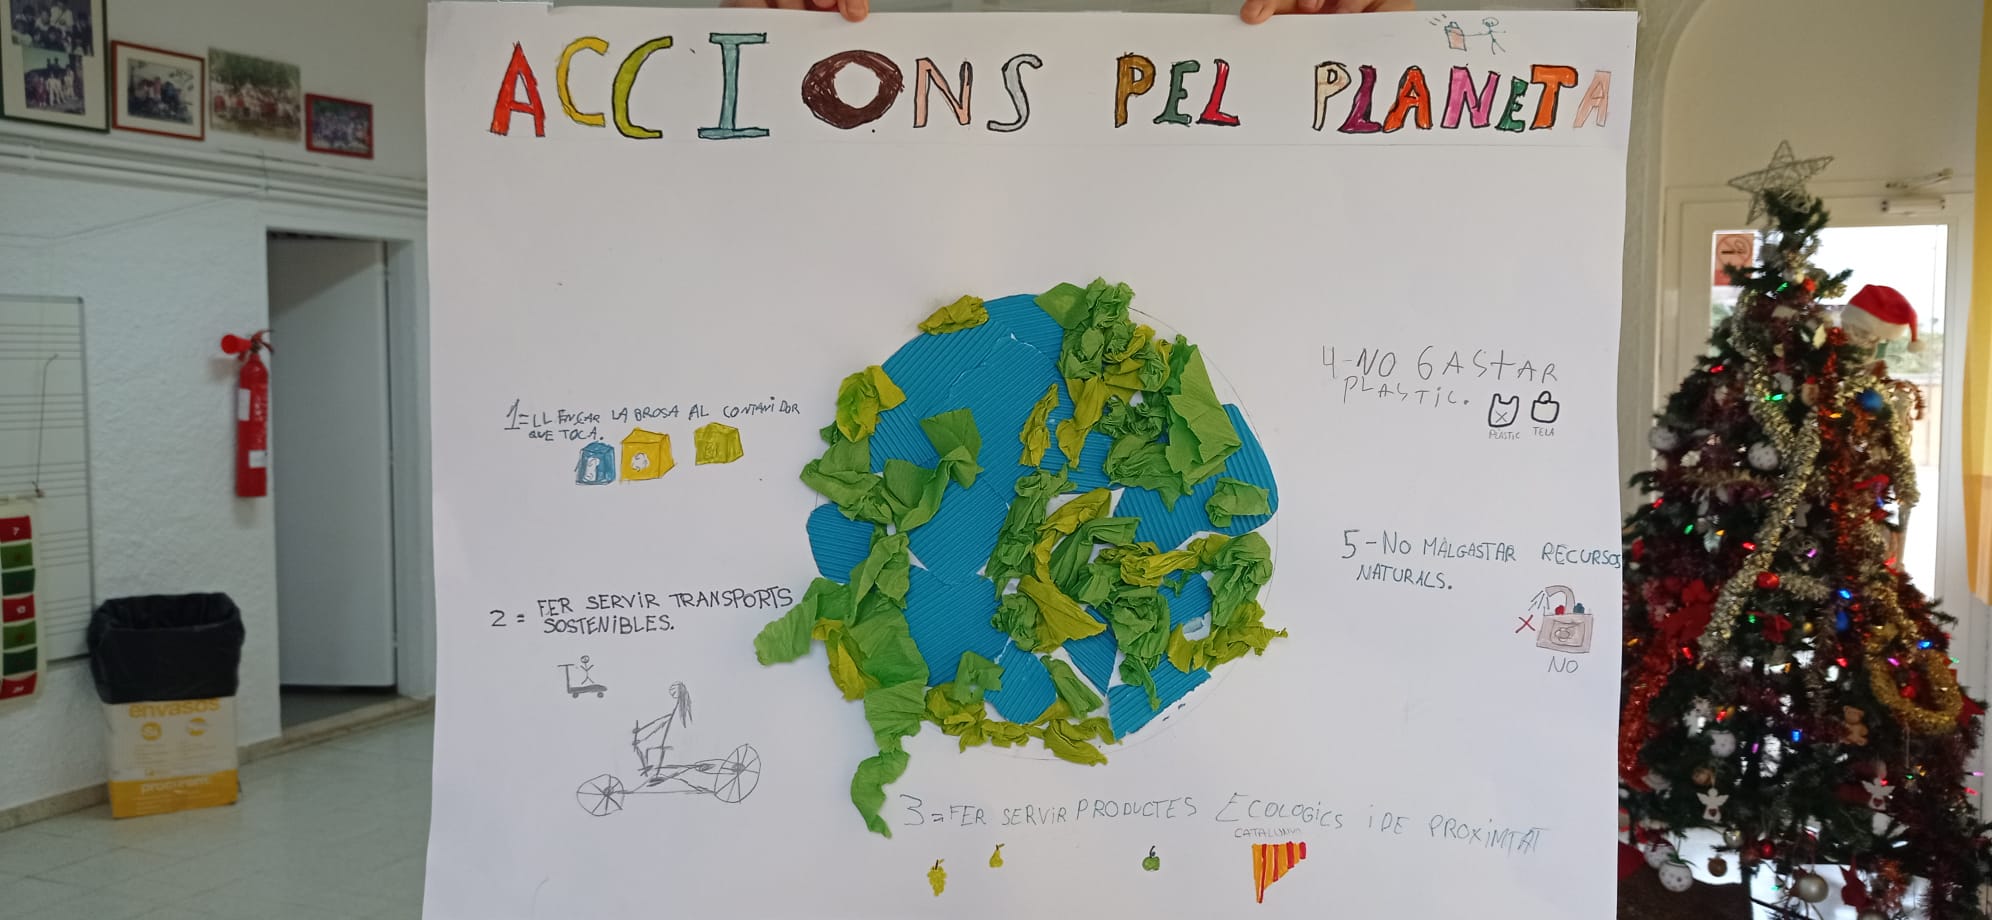 ACCIONS PEL PLANETA
1=LLENÇAR LA BROSA AL CONTANIDOR
QUE TOCA.
2= FER SERVIR TRANSPORTS
SOSTENIBLES.
3=FER SERVIR PRODUCTES ECOLOGICS i DE PROXIMTAT
CATALUNYA
4-NO GASTAR
PLASTIC.
PLASTIC
TELA
5-NO MALGASTAR RECURSOS
NATURALS.
NO
envasos